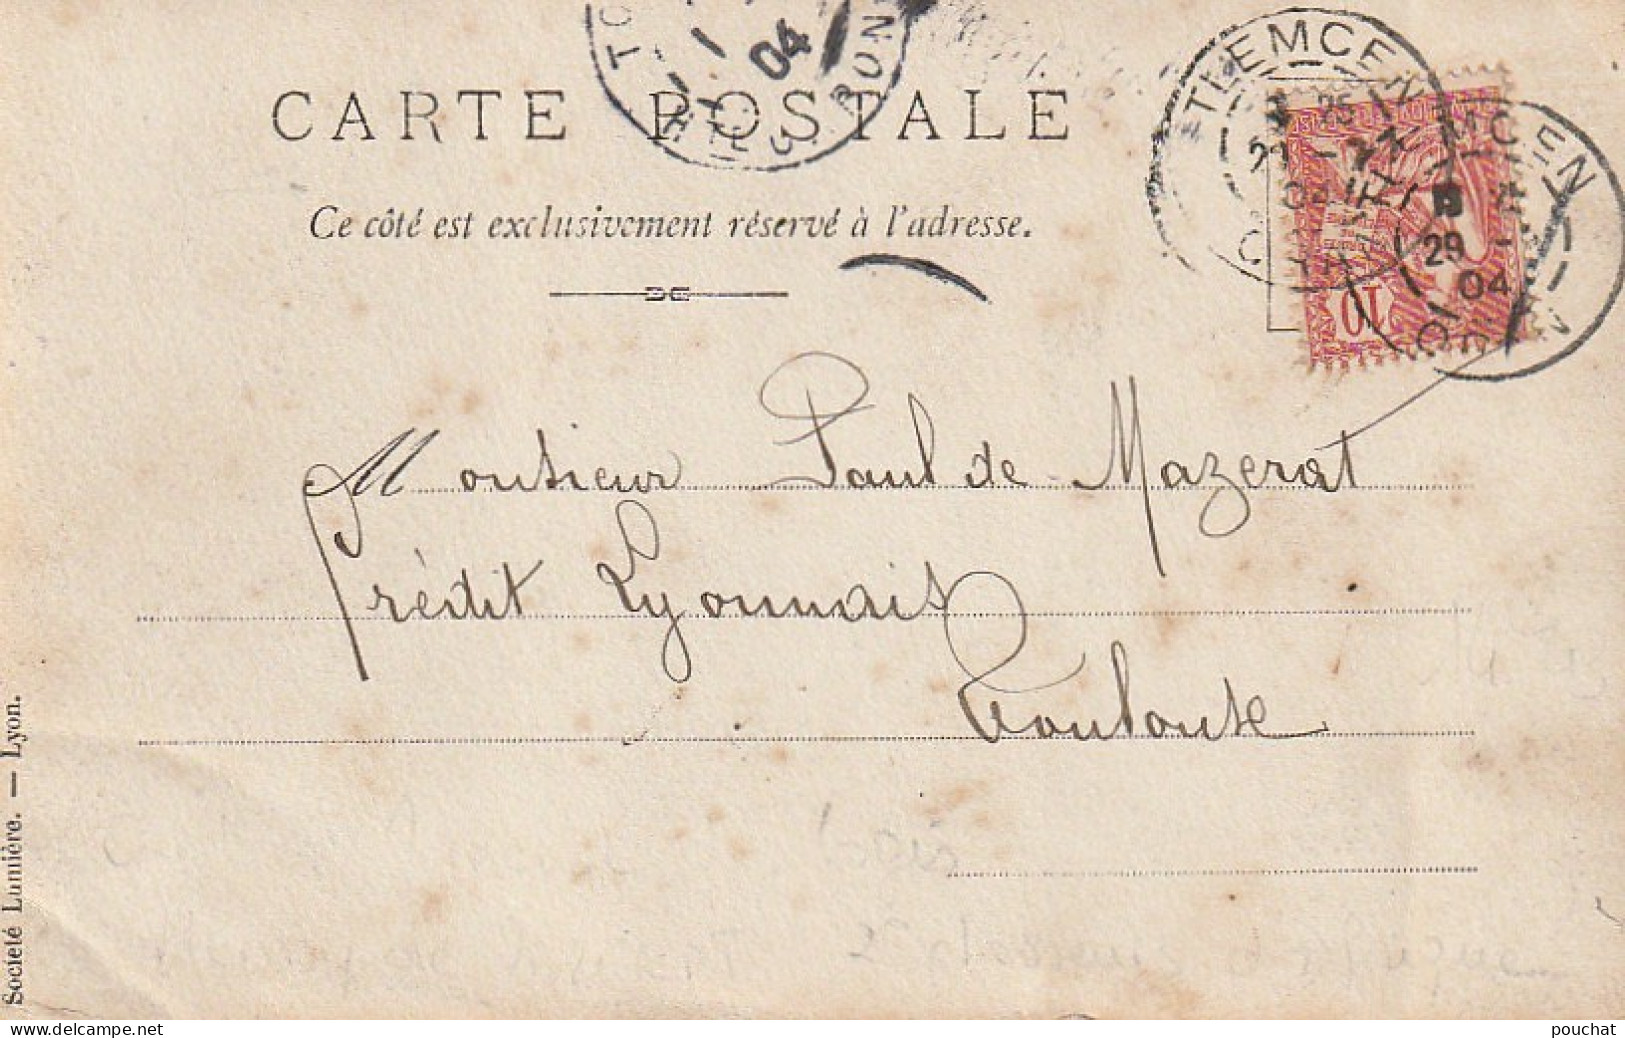 CARTE POSTALE
Ce côté est exclusivement réservé à l'adresse.
TLEMCEN
29
04
MCEN
29
04
ORAN
04
10
Monsieur Paul de Mazerat
Crédit Lyonnais
Toulouse
Société Lumière. — Lyon.
www.delcampe.net
pouchat